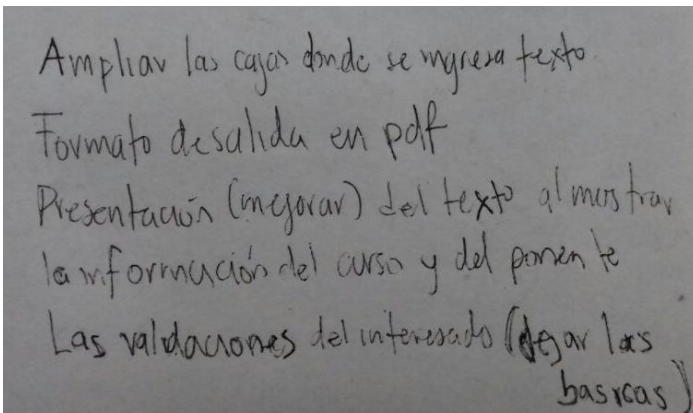 Ampliar las cajas donde se ingresa texto
Formato de salida en pdf
Presentación (mejorar) del texto al mostrar
la información del curso y del ponente
Las validaciones del interesado (dejar las
basicas)